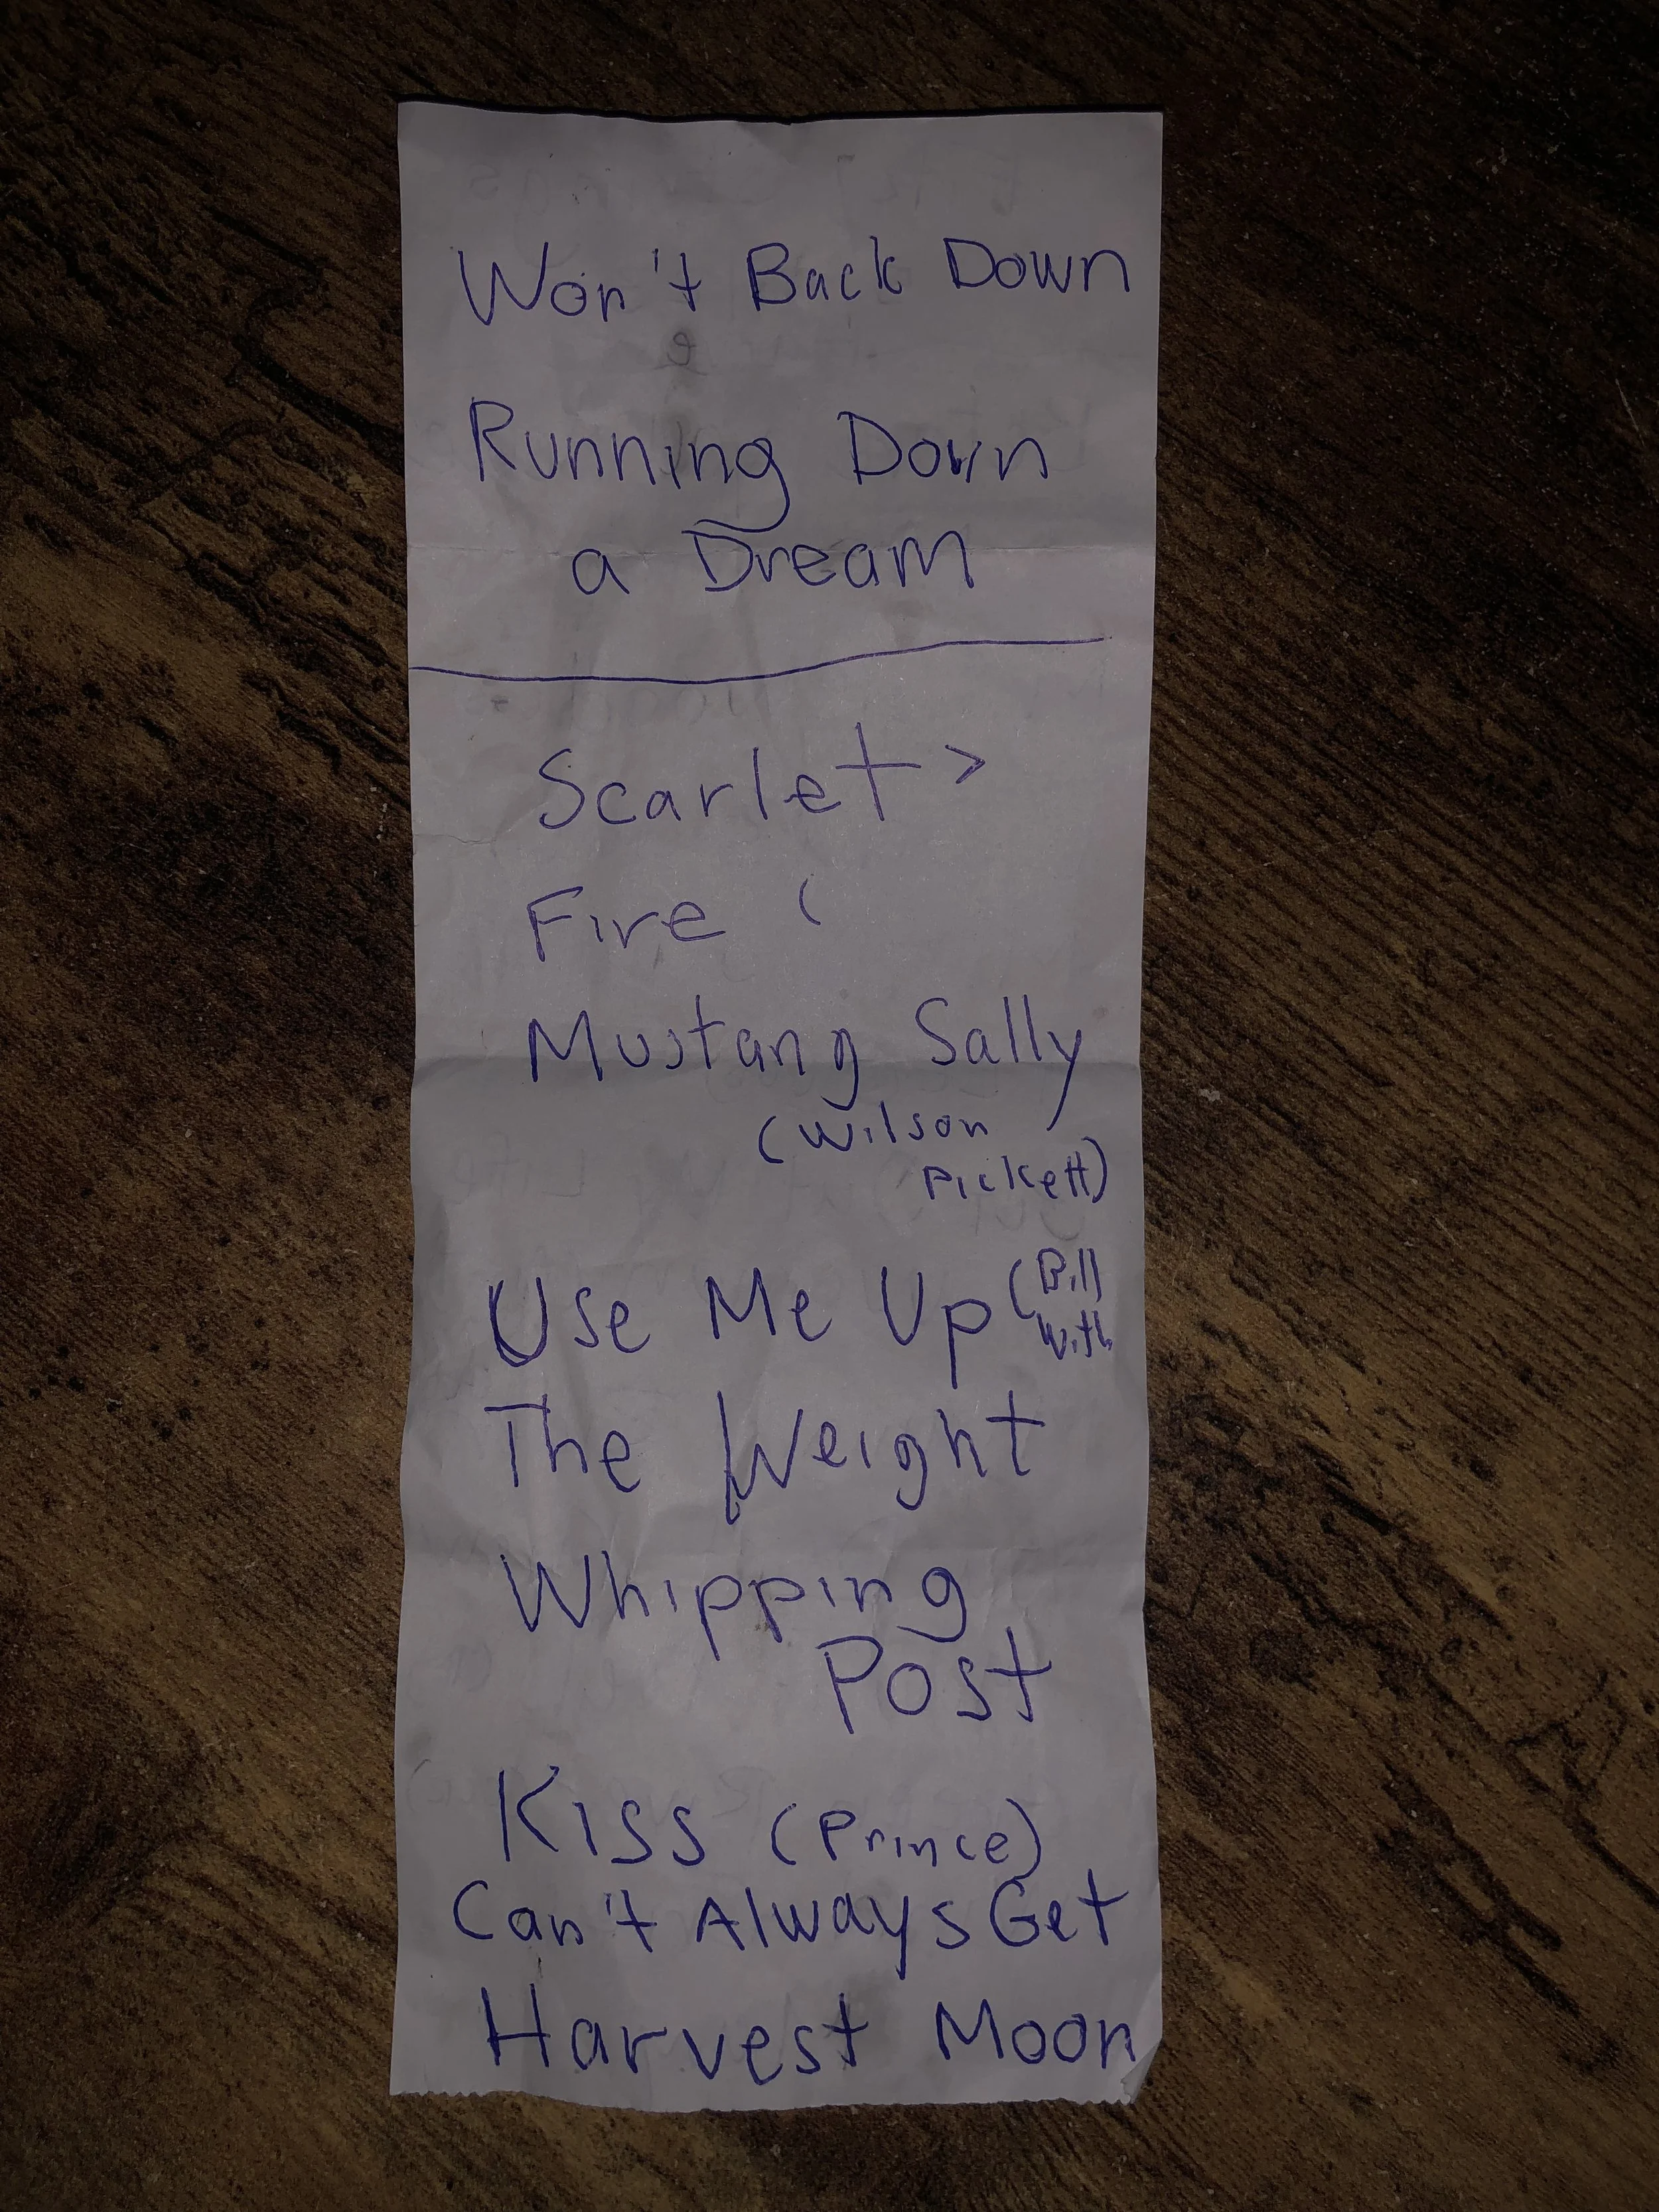 Won't Back Down
Running Down
a Dream
Scarlet >
Fire (
Mustang Sally
(Wilson
Pickett)
Use Me Up (Bill
With
The Weight
Whipping
Post
Kiss (Prince)
Can't Always Get
Harvest Moon